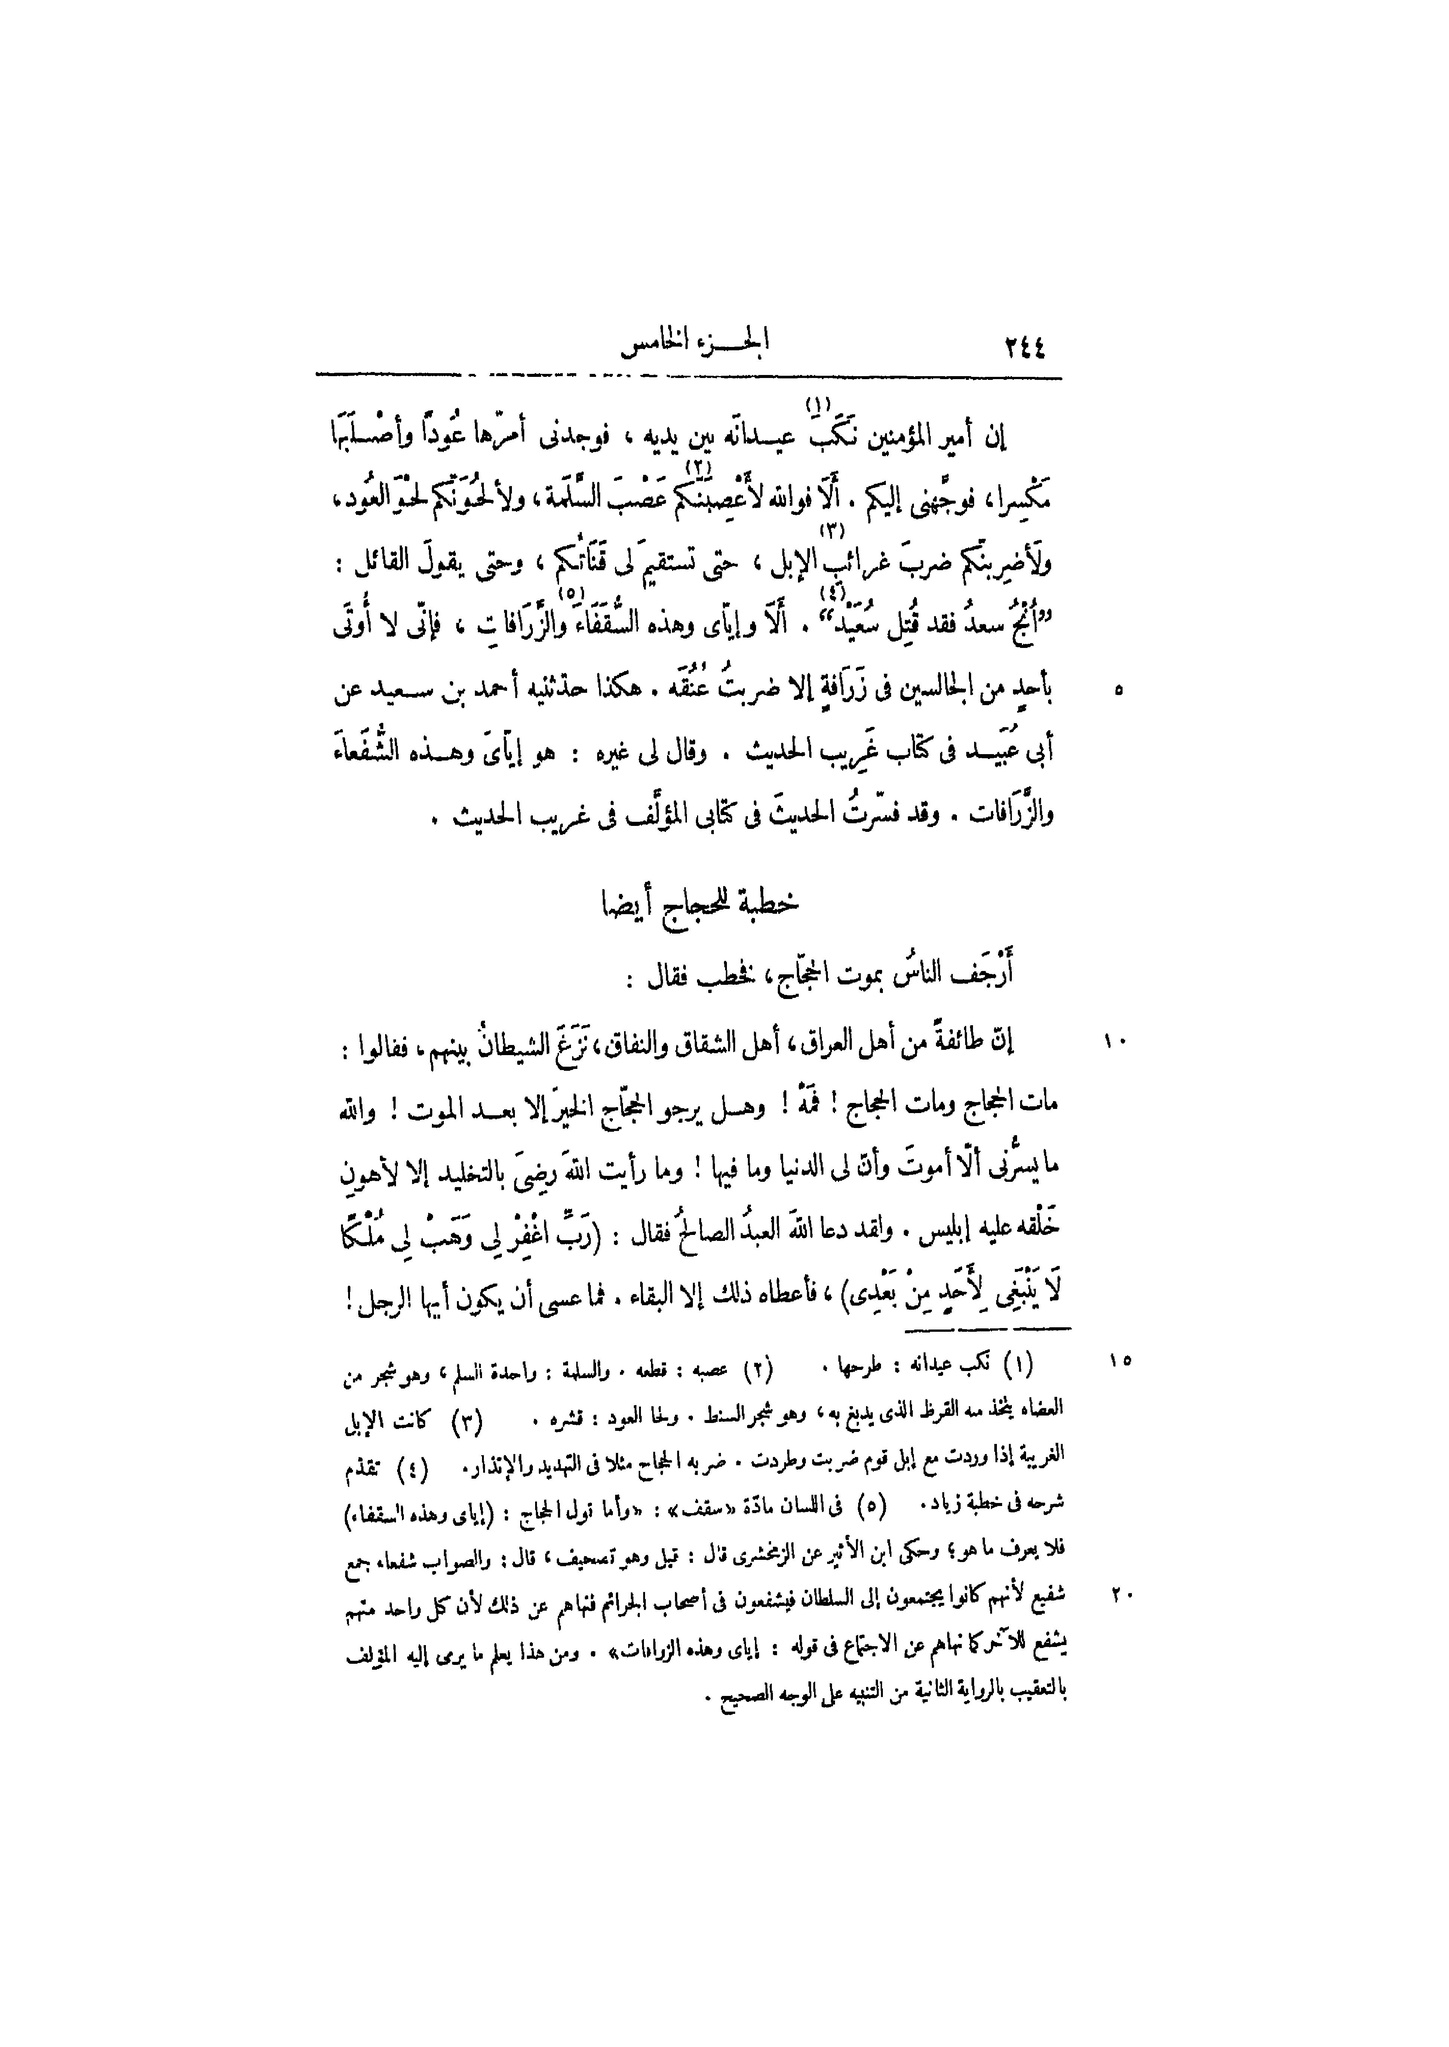 ٢٤٤ الجـزء الخامس
إن أمير المؤمنين نَكَبَ (١) عيـدانَه بين يديه ، فوجدنى أمرّها عُودًا وأصْـلَبَهَا
مَكْسِرا، فوجَّهنى إليكم . أَلَا فوالله لأَعْصِبَنَّكم (٢) عَصْبَ السَّلَمة، ولألحُوَنّكم لحْوَ العُود،
ولَأضرِبنّكم ضربَ غرائبِ (٣) الإبل ، حتى تستقيمَ لى قَنَاتُكم ، وحتى يقولَ القائل :
”اُنْجُ سعدُ فقد قُتِل سُعَيْد“ (٤) . أَلَا وإيّاى وهذه السُّقَفَاءَ (٥) والزَّرَافاتِ ، فإنّى لا أُوتَى
٥ بأحدٍ من الجالسين فى زَرَافةٍ إلا ضربتُ عُنُقَه . هكذا حدّثنيه أحمد بن سـعيد عن
أبى عُبَيـد فى كتاب غَرِيب الحديث . وقال لى غيره : هو إيّاىَ وهـذه الشُّفَعاءَ
والزَّرَافات . وقد فسّرتُ الحديثَ فى كتابى المؤلَّف فى غريب الحديث .
خطبة للحجاج أيضا
أَرْجَف الناسُ بموت الحجّاج، فخطب فقال :
١٠ إنّ طائفةً من أهل العراق، أهل الشقاق والنفاق، نَزَغَ الشيطانُ بينهم، فقالوا :
مات الحجاج ومات الحجاج ! فَمَهْ ! وهـل يرجو الحجّاج الخيرَ إلا بعـد الموت ! والله
ما يسرُّنى ألّا أموتَ وأنّ لى الدنيا وما فيها ! وما رأيت اللهَ رضِىَ بالتخليد إلا لأهونِ
خَلْقه عليه إبليس . ولقد دعا اللهَ العبدُ الصالحُ فقال : (رَبِّ اغْفِرْ لِي وَهَبْ لِي مُلْـكًا
لَا يَنْبَغِى لِأَحَدٍ مِنْ بَعْدِى) ، فأعطاه ذلك إلا البقاء . فما عسى أن يكون أيها الرجل !
١٥ (١) نكب عيدانه : طرحها . (٢) عصبه : قطعه . والسلمة : واحدة السلم ، وهو شجر من
العضاه يتخذ منه القرظ الذى يدبغ به ، وهو شجر السنط . ولحا العود : قشره . (٣) كانت الإبل
الغريبة إذا وردت مع إبل قوم ضربت وطردت . ضربه الحجاج مثلا فى التهديد والإنذار. (٤) تقدّم
شرحه فى خطبة زياد. (٥) فى اللسان مادّة «سقف» : «وأما قول الحجاج : (إياى وهذه السقفاء)
فلا يعرف ما هو؛ وحكى ابن الأثير عن الزمخشرى قال : قيل وهو تصحيف ، قال : والصواب شفعاء جمع
٢٠ شفيع لأنهم كانوا يجتمعون إلى السلطان فيشفعون فى أصحاب الجرائم فنهاهم عن ذلك لأن كل واحد منهم
يشفع للآخر كما نهاهم عن الاجتماع فى قوله : إياى وهذه الزرافات» . ومن هذا يعلم ما يرمى إليه المؤلف
بالتعقيب بالرواية الثانية من التنبيه على الوجه الصحيح .